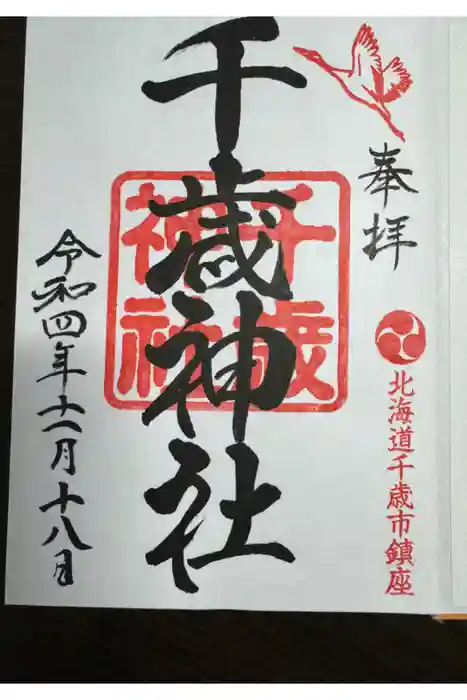 奉拝
北海道千歳市鎮座
千歳神社
千歳
神社
令和四年十一月十八日